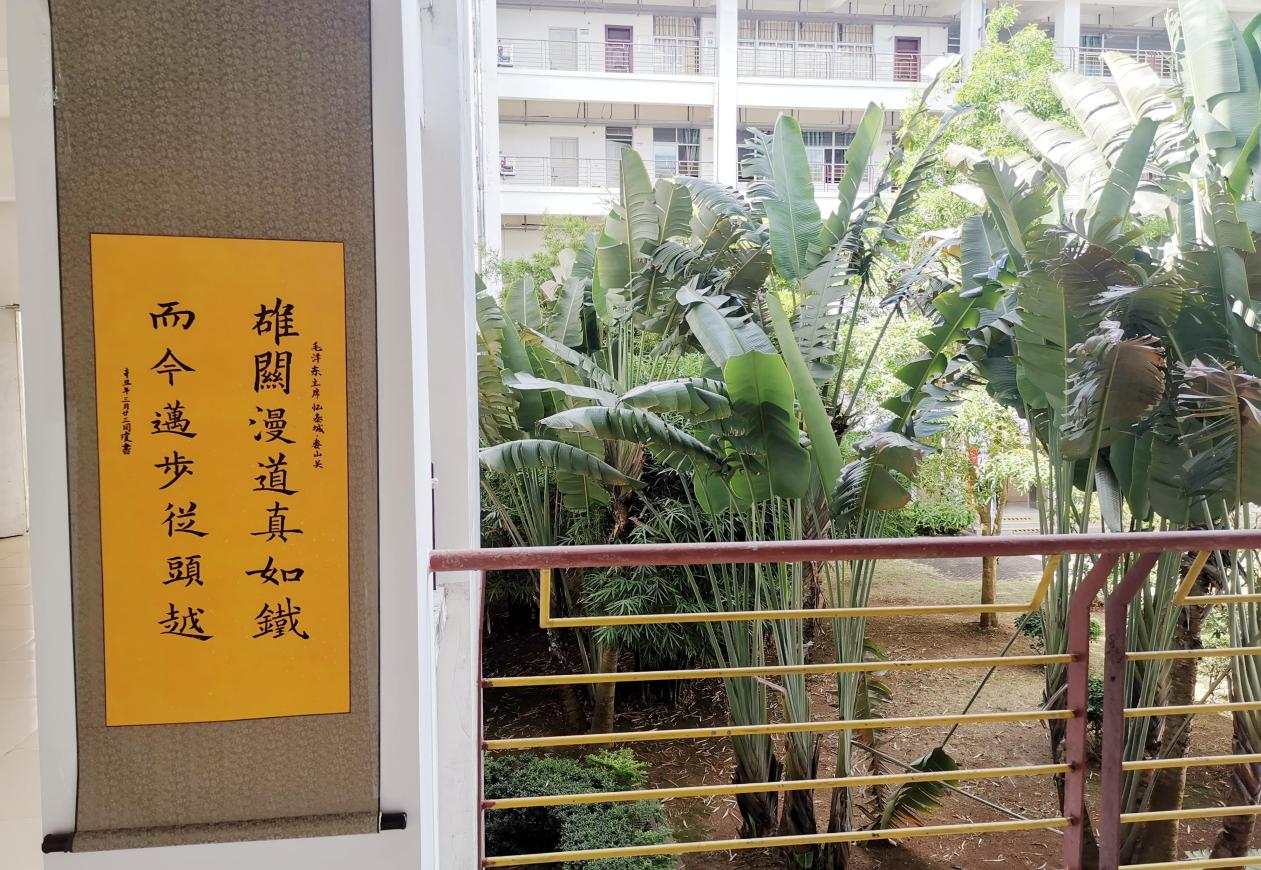 毛泽东主席忆秦娥·娄山关
雄關漫道真如鐵
而今邁步從頭越
辛丑年三月廿三司瓊書